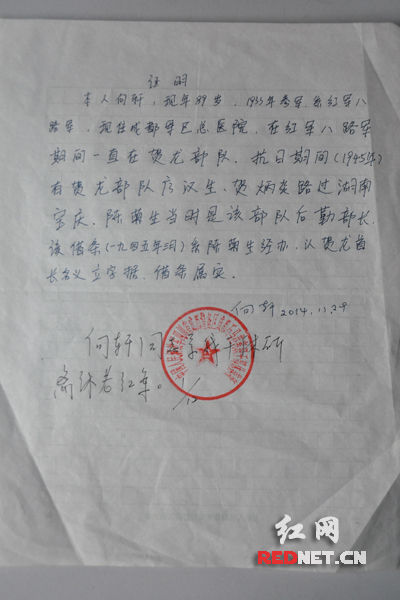 证明
本人向轩，现年89岁，1933年参军系红军八
路军，现住成都军区总医院，在红军八路军
期间一直在贺龙部队，抗日期间(1945年)
有贺龙部队廖汉生、贺炳炎路过湖南
宝庆，陈菊生当时是该部队后勤部长，
该借条(一九四五年三月)系陈菊生经办，以贺龙首
长名义立字据，借条属实。
向轩2014.11.29
向轩同
离休老红军。
红网
REDNET.CN